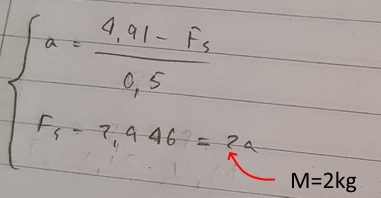 a = 4,91 - Fs / 0,5
Fs - 2,946 = 2a
M=2kg